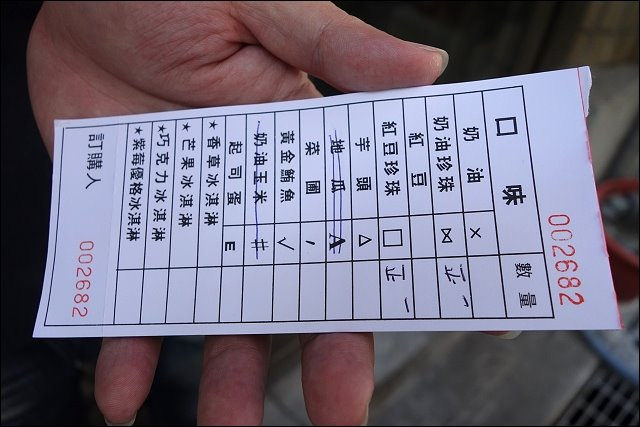 002682
口味 數量
奶油 ×
奶油珍珠 ⋈ 正一
紅豆
紅豆珍珠 □ 正一
芋頭 △
地瓜 A
菜圃 ˊ
黃金鮪魚 √
奶油玉米 井
起司蛋 E
★香草冰淇淋
★芒果冰淇淋
★巧克力冰淇淋
★紫莓優格冰淇淋
訂購人
002682